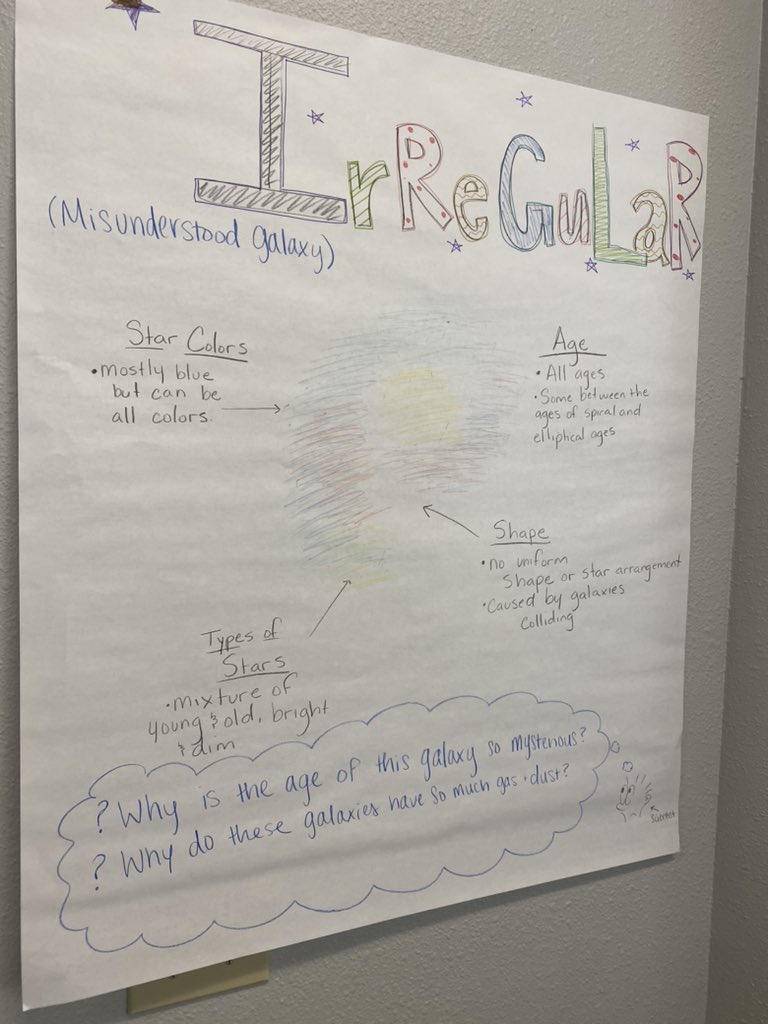 IrReGuLaR
(Misunderstood galaxy)
Star Colors
• mostly blue
but can be
all colors.
Age
• All ages
• Some between the
ages of spiral and
elliptical ages
Shape
• no uniform
Shape or star arrangement
• Caused by galaxies
Colliding
Types of
Stars
• mixture of
young & old, bright
& dim
? Why is the age of this galaxy so mysterious?
? Why do these galaxies have so much gas + dust?